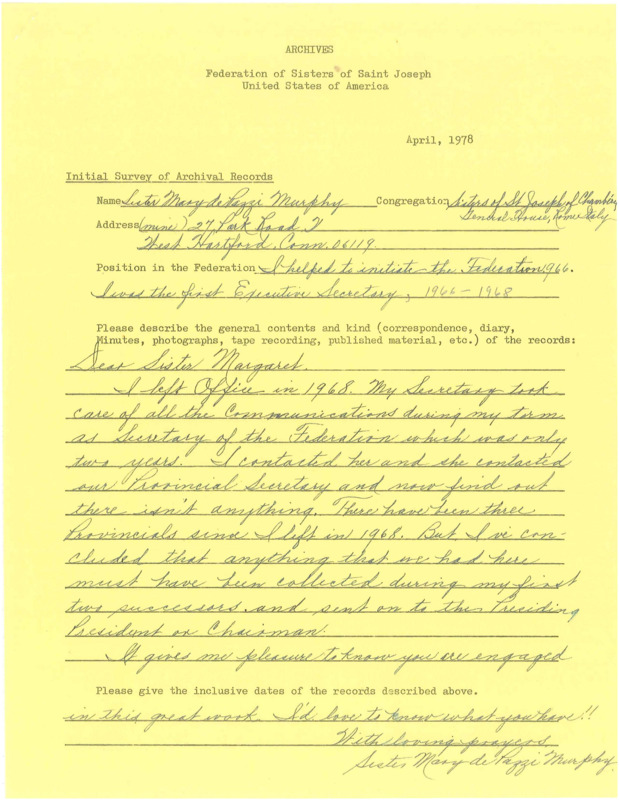 ARCHIVES
Federation of Sisters of Saint Joseph
United States of America
April, 1978
Initial Survey of Archival Records
Name Sister Mary de Pazzi Murphy Congregation Sisters of St Joseph of Chambery
General House, Rome Italy
Address (mine) 27 Park Road
West Hartford, Conn. 06119
Position in the Federation I helped to initiate the Federation 1966.
I was the first Executive Secretary, 1966-1968
Please describe the general contents and kind (correspondence, diary,
Minutes, photographs, tape recording, published material, etc.) of the records:
Dear Sister Margaret.
I left Office in 1968. My Secretary took
care of all the Communications during my term
as Secretary of the Federation which was only
two years. I contacted her and she contacted
our Provincial Secretary and now find out
there isn't anything. There have been three
Provincials since I left in 1968. But I've con-
cluded that anything that we had here
must have been collected during my first
two successors. and sent on to the Presiding
President or Chairman.
It gives me pleasure to know you are engaged
Please give the inclusive dates of the records described above.
in this great work. I'd love to know what you have!!
With loving prayers
Sister Mary de Pazzi Murphy